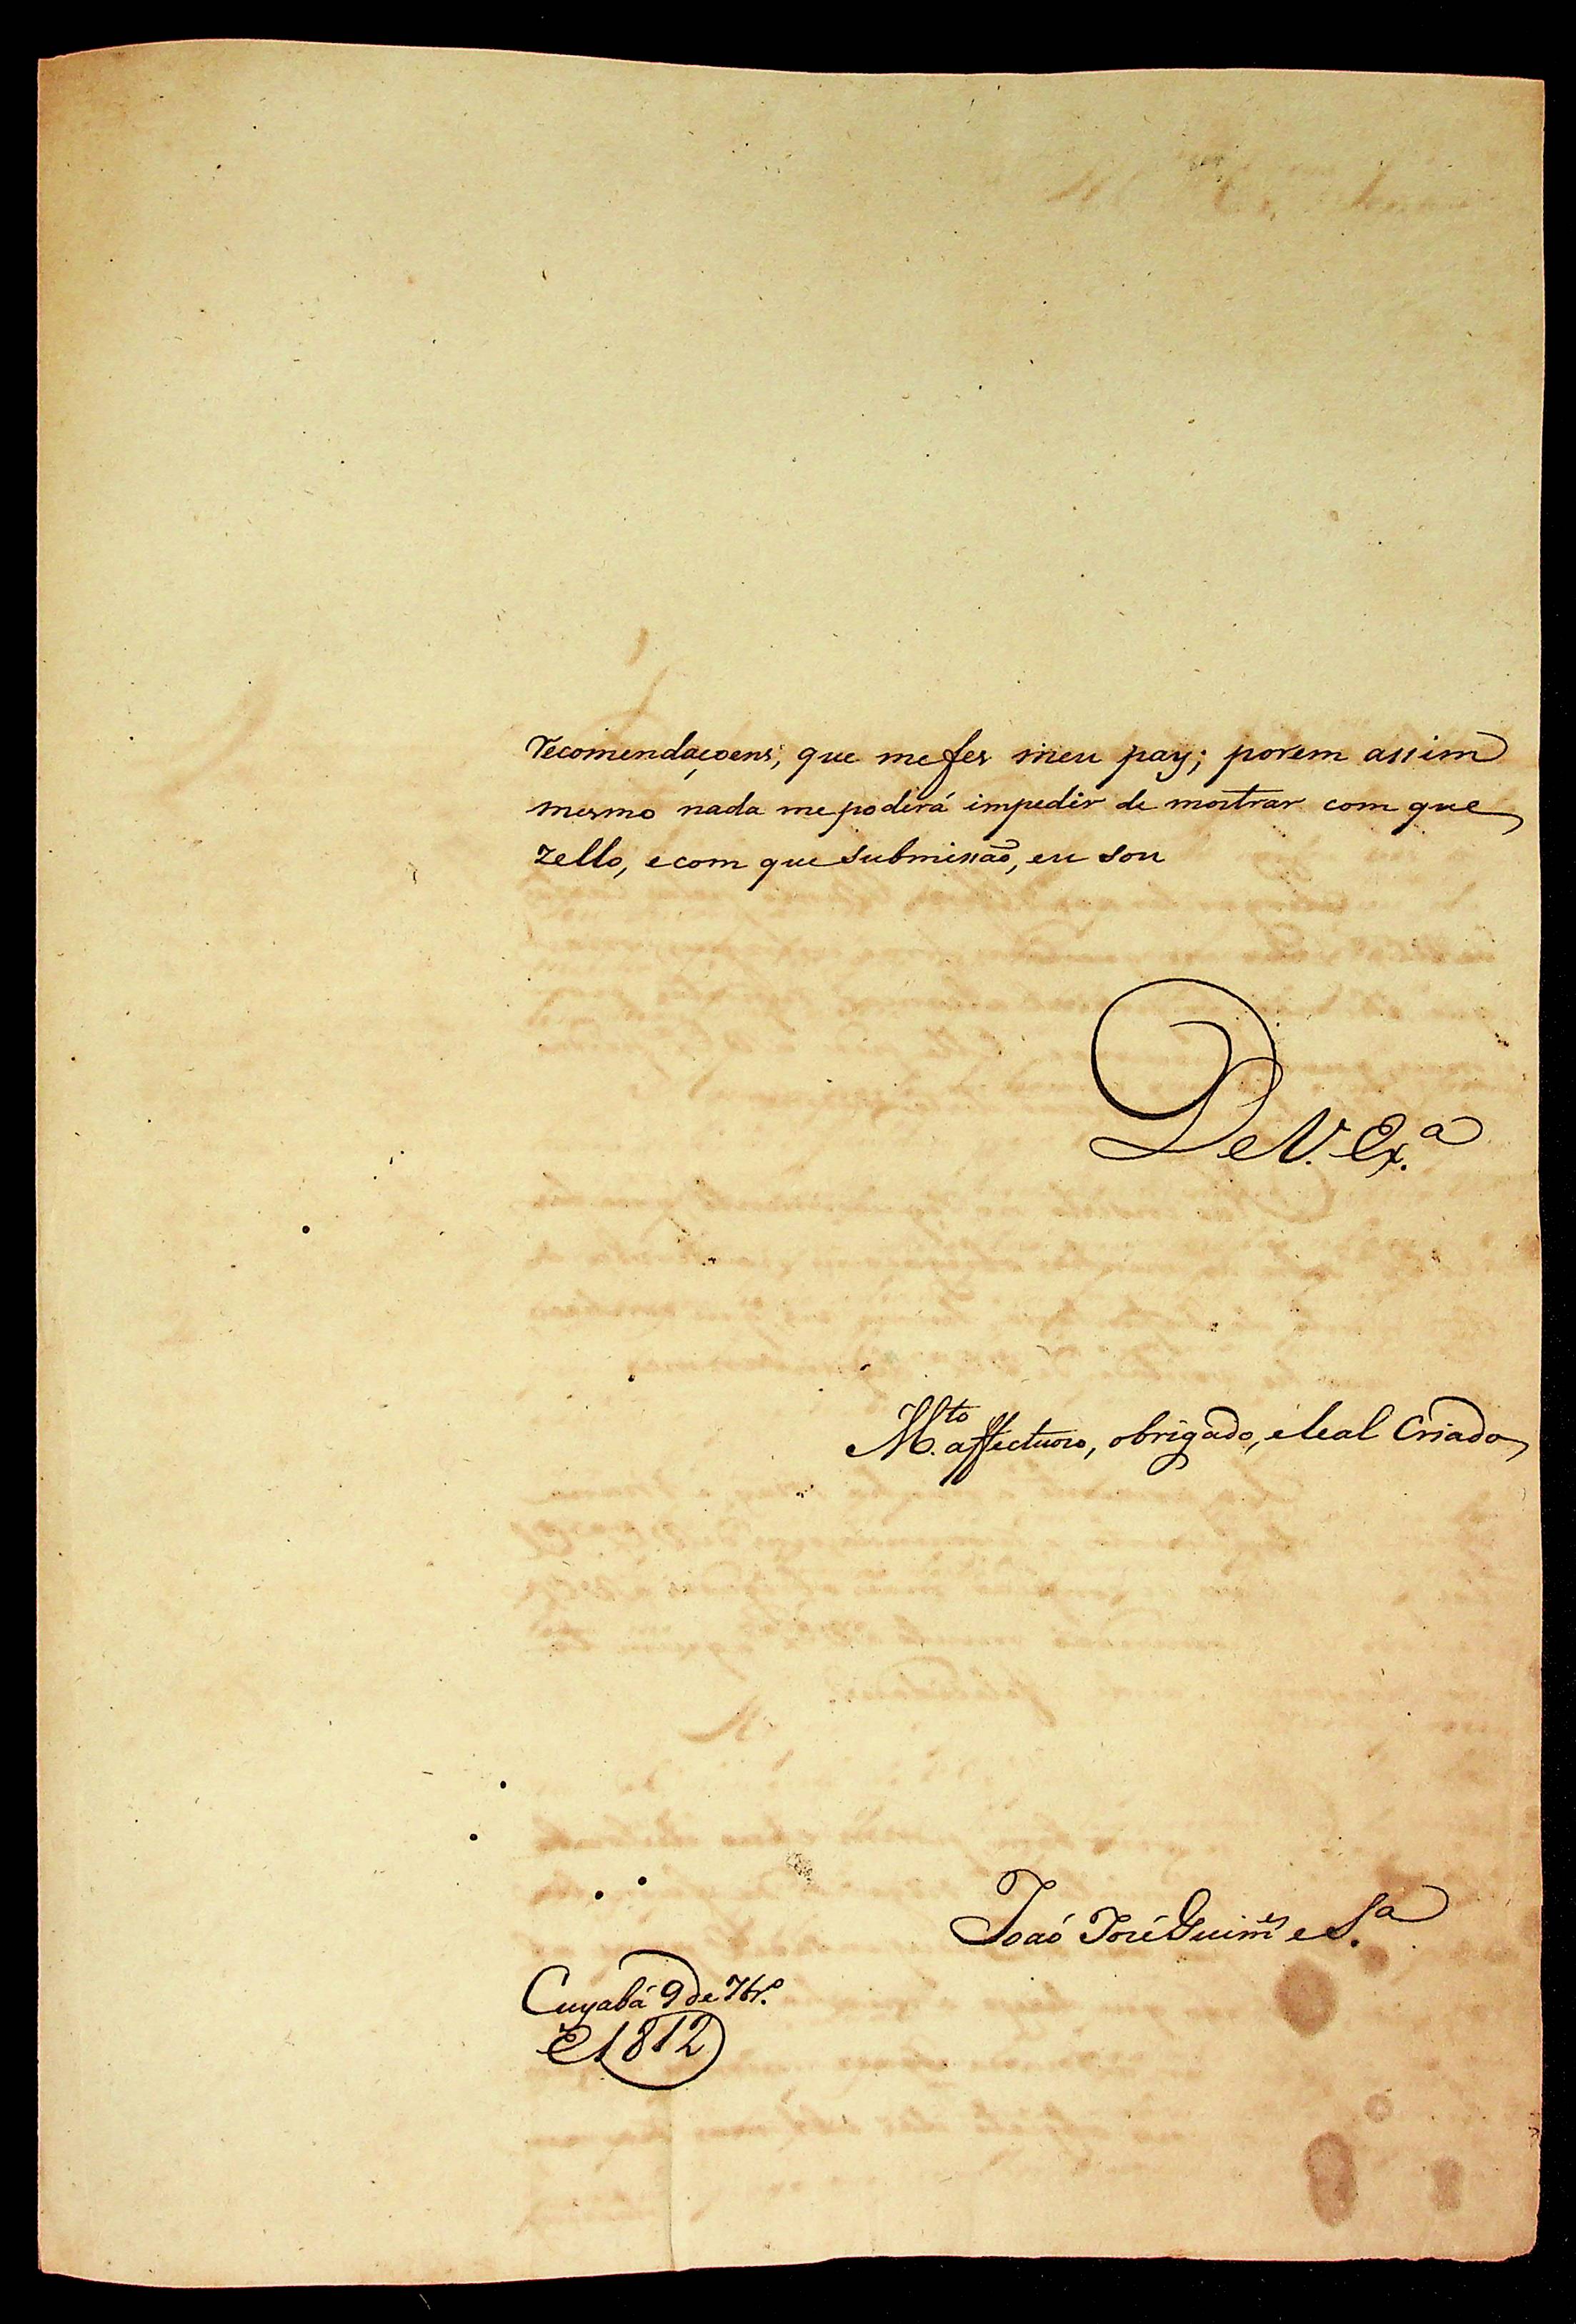 recomendaçoens, que mefes meu pay; porem assim
mesmo nada mepoderá impedir de mostrar com que
zello, ecom que submissaõ, eu sou
DeV. Ex.ª
M.to affectuoso, obrigado, eleal Criado
Joaõ José Guim.es e S.ª
Cuyabá 9 de 7br.º
1812